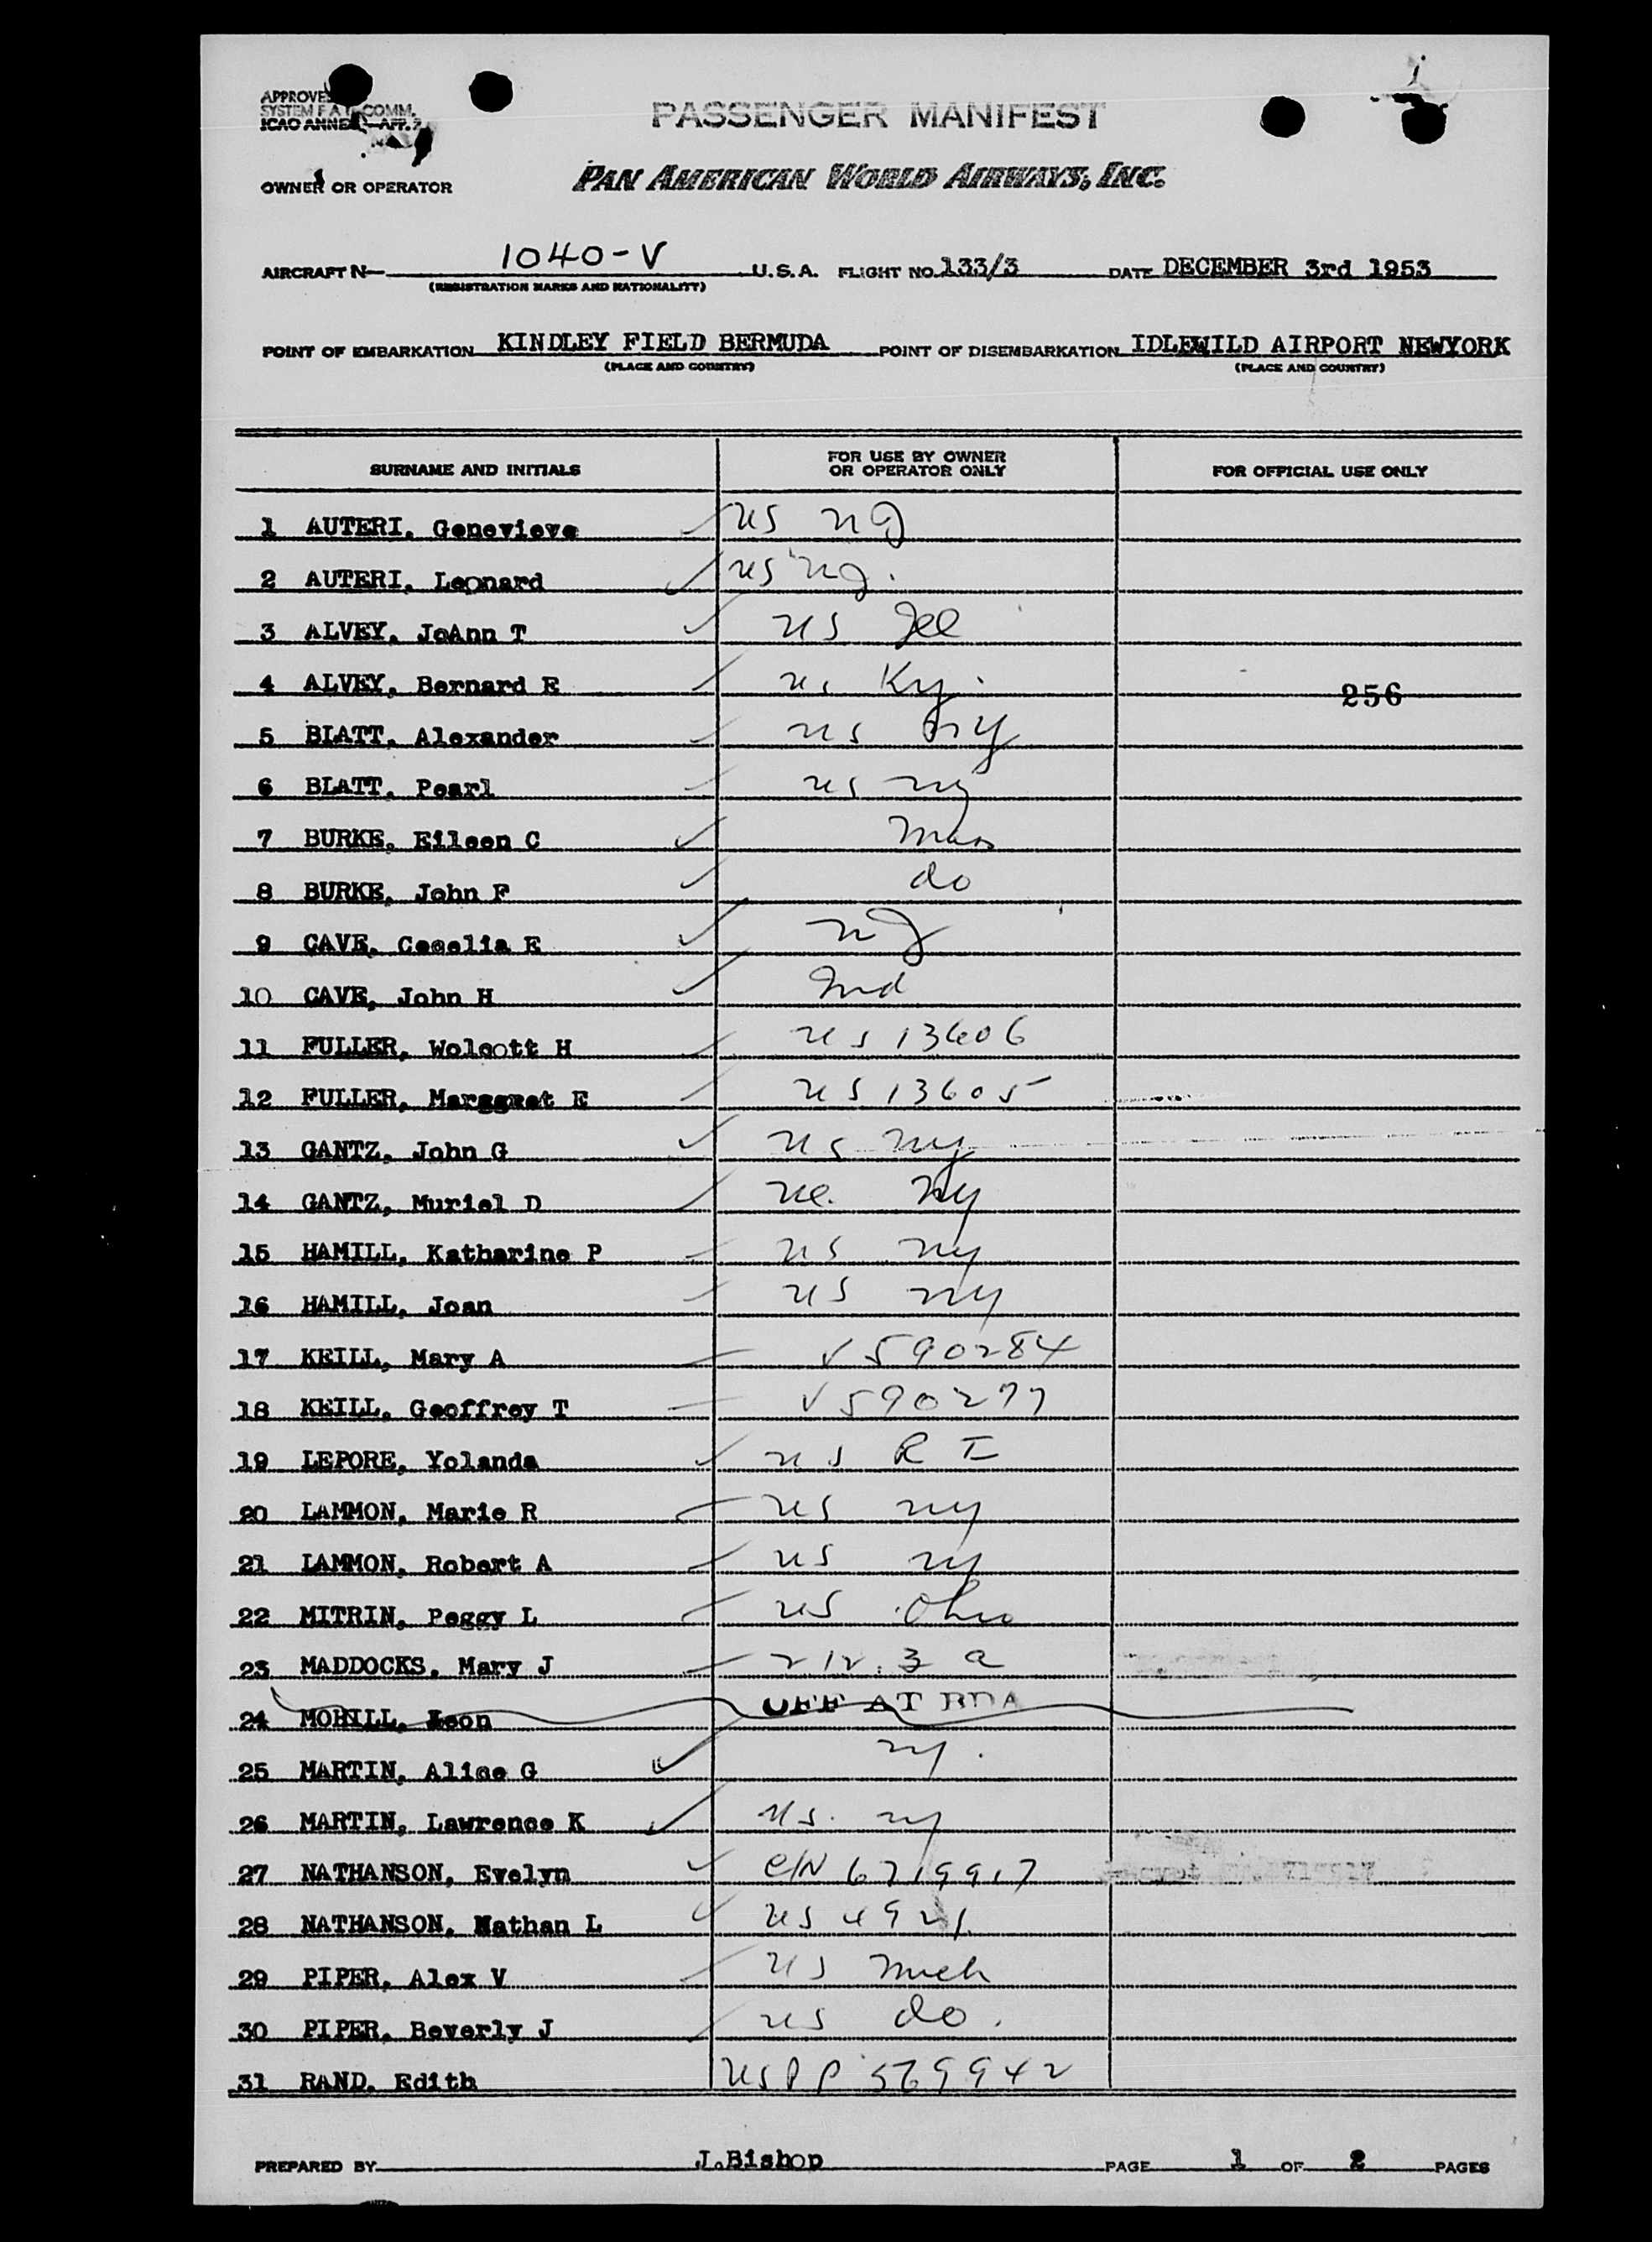 APPROVE
SYSTEM F A COMM.
ICAO ANNE APP. 7
PASSENGER MANIFEST
OWNER OR OPERATOR PAN AMERICAN WORLD AIRWAYS, INC.
AIRCRAFT N— 1040-V U.S.A. FLIGHT NO. 133/3 DATE DECEMBER 3rd 1953
(REGISTRATION MARKS AND NATIONALITY)
POINT OF EMBARKATION KINDLEY FIELD BERMUDA POINT OF DISEMBARKATION IDLEWILD AIRPORT NEWYORK
(PLACE AND COUNTRY) (PLACE AND COUNTRY)
SURNAME AND INITIALS FOR USE BY OWNER OR OPERATOR ONLY FOR OFFICIAL USE ONLY
1 AUTERI, Genevieve US NJ
2 AUTERI, Leonard US NJ.
3 ALVEY, JoAnn T US Ill
4 ALVEY, Bernard E US Ky.
256
5 BLATT, Alexander US NY
6 BLATT, Pearl US NY
7 BURKE, Eileen C Mass
8 BURKE, John F do
9 CAVE, Cecelia E NJ
10 CAVE, John H Ind
11 FULLER, Wolcott H US 13606
12 FULLER, Marggret E US 13605
13 GANTZ, John G US NY
14 GANTZ, Muriel D US NY
15 HAMILL, Katharine P US NY
16 HAMILL, Joan US NY
17 KEILL, Mary A V 590284
18 KEILL, Geoffrey T V 590277
19 LEPORE, Yolanda US R I
20 LAMMON, Marie R US NY
21 LAMMON, Robert A US NY
22 MITRIN, Peggy L US Ohio
23 MADDOCKS, Mary J 212.3 a
24 MOHILL, Leon OFF AT BDA
25 MARTIN, Alice G NY.
26 MARTIN, Lawrence K US. NY
27 NATHANSON, Evelyn C/N 6719917
28 NATHANSON, Nathan L US 4921
29 PIPER, Alex V US Mich
30 PIPER, Beverly J US do.
31 RAND, Edith US PP 569942
PREPARED BY J.Bishop PAGE 1 OF 2 PAGES